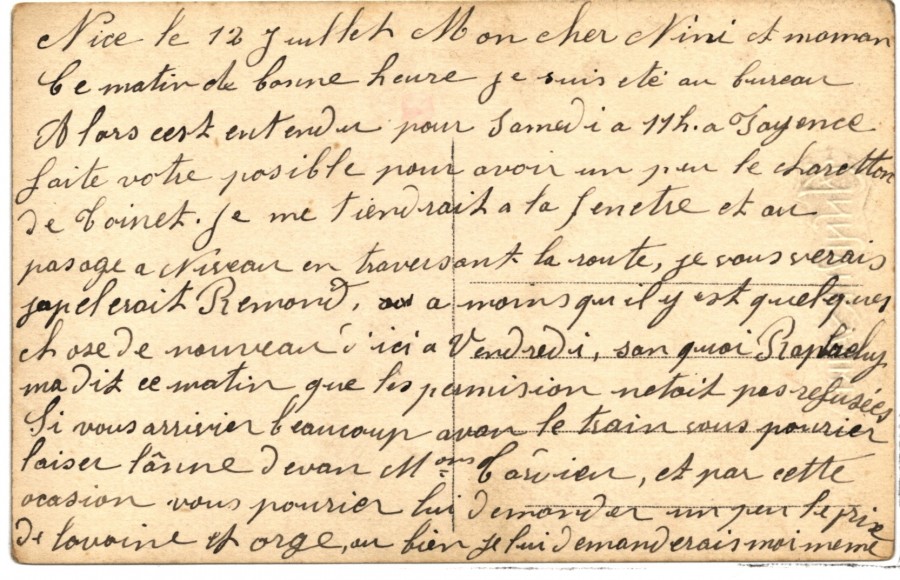 Nice le 12 Juillet Mon cher Nini et moman
Ce matin de bonne heure je suis eté au bureau
Alors cest entendu pour Samedi a 11h. a Fayence
faite votre posible pour avoir un peu le charetton
de Toinet. Je me tiendrait a la fenetre et au
pasage a Niveau en traversant la route, je vous verais
japelerait Remond, a moins qu il y est quelques
chose de nouveau d'ici a Vendredi, san quoi
ma dit ce matin que les permision netait pas refusées
Si vous arrivier beaucoup avan le train vous pourier
laiser lânne devan Mons , et par cette
ocasion vous pourier lui demander un peu le prix
de lavoine et orge, ou bien je lui demanderais moi meme